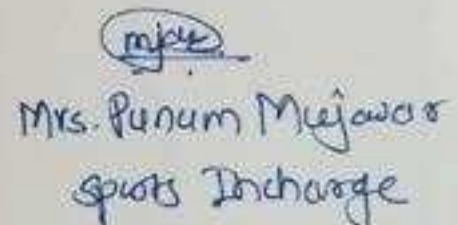 Mrs. Punum Mujawar
sports Incharge